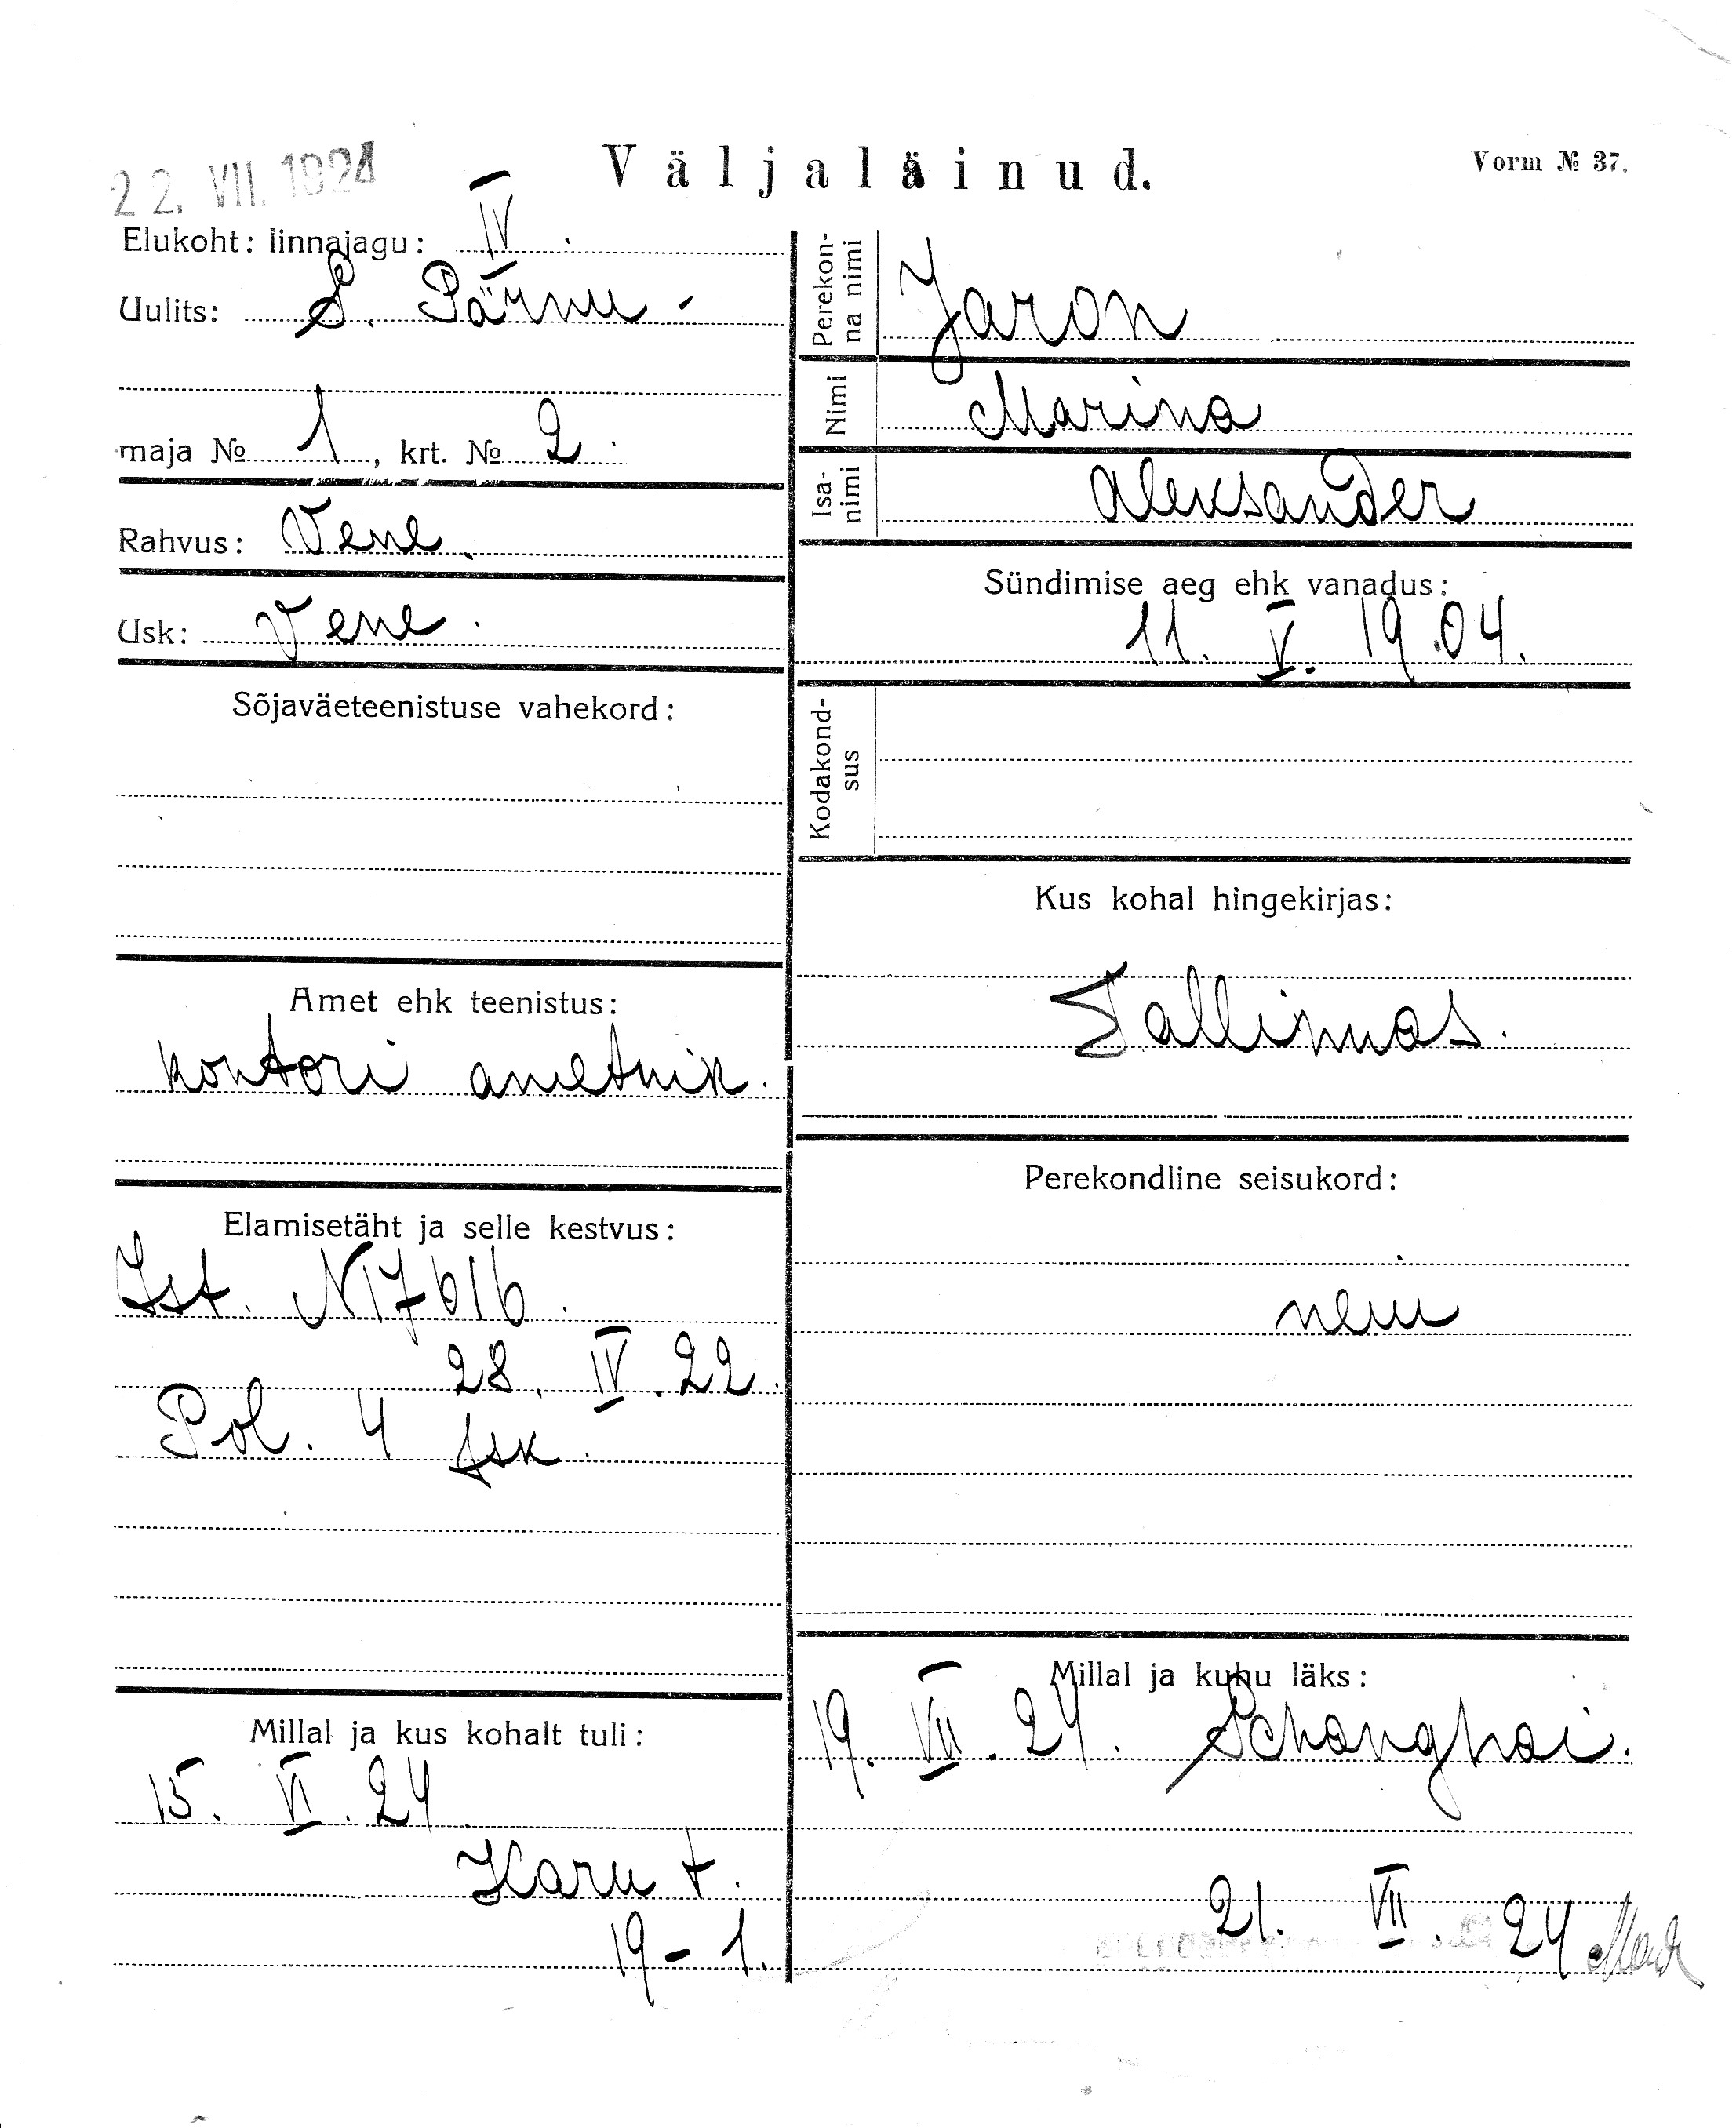 22. VII. 1924
Väljaläinud.
Vorm № 37.
Elukoht: linnajagu: IV.
Uulits: S. Pärnu -
maja № 1, krt. № 2.
Rahvus: Vene.
Usk: Vene.
Sõjaväeteenistuse vahekord:
Amet ehk teenistus:
kontori ametnik.
Elamisetäht ja selle kestvus:
Ist. N 17616.
28. IV. 22.
Pol. 4 jsk.
Millal ja kus kohalt tuli:
15. VI. 24.
Karu t.
19 - 1.
Perekon-
na nimi Jaron
Nimi Marina
Isa-
nimi Aleksander
Sündimise aeg ehk vanadus:
11. V. 19.04.
Kodakond-
sus
Kus kohal hingekirjas:
Tallinnas.
Perekondline seisukord:
neiu
Millal ja kuhu läks:
19. VII. 24. Schanghai.
21. VII. 24